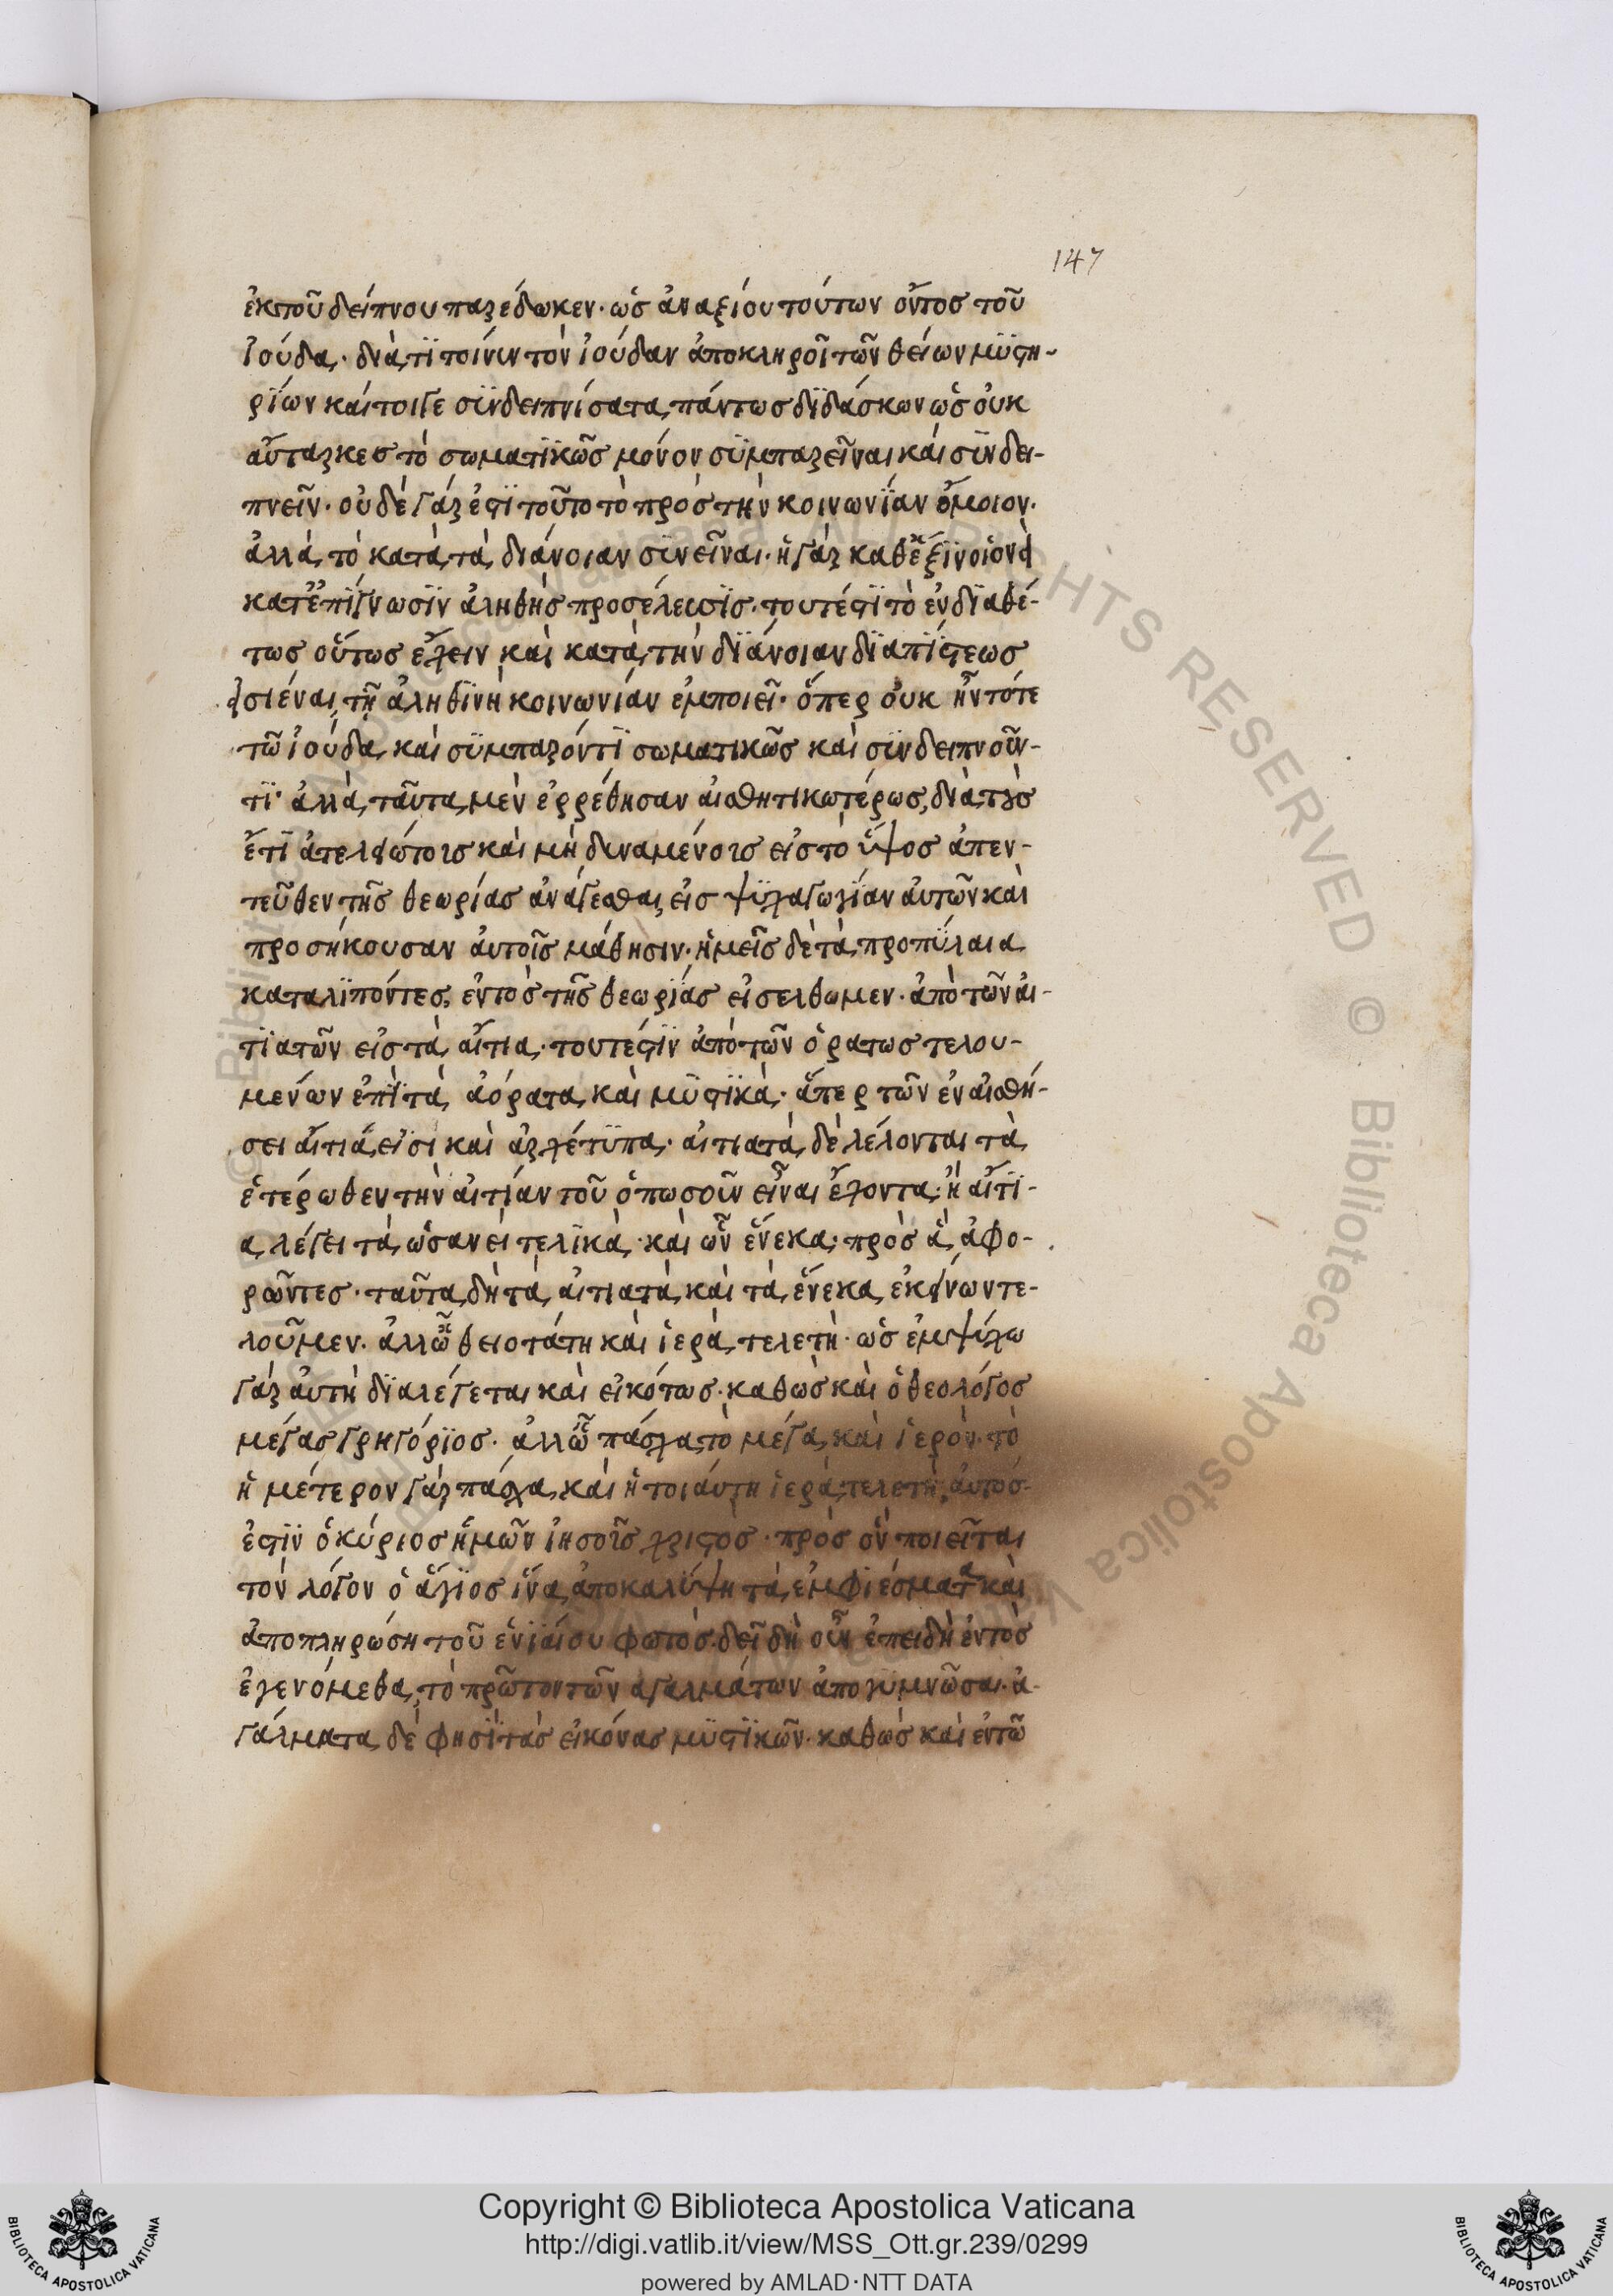 147
ἐκτοῦ δείπνου παρέδωκεν· ὡς ἀναξίου τούτων ὄντος τοῦ
ἰούδα· διὰ τί τοίνυν τὸν ἰούδαν ἀποκληροῖ τῶν θείων μϋστη-
ρΐων καίτοιγε σϋνδειπνίσατα, πάντως δϊδάσκων ὡς οὐκ
αὔταρκες τὸ σωματϊκῶς μόνον σϋμπαρεῖναι καὶ σϋνδει-
πνεῖν· οὐδὲ γάρ ἐστϊ τοῦτο τὸ πρὸς τὴν κοινωνΐαν ὅμοιον·
ἀλλὰ τὸ κατὰ τὰ διάνοιαν σϋνεῖναι· ἡ γὰρ καθ' ἕξϊν οἱονεὶ
κατ' ἐπΐγνωσϊν ἀληθὴς προσέλευσϊς· τουτέστϊ τὸ ἐνδϊαθέ-
τως οὕτως ἔχειν καὶ κατὰ τὴν δϊάνοιαν δϊαπΐστεως
εἰσιέναι, τῇ ἀληθϊνῇ κοινωνίαν ἐμποιεῖ· ὅπερ οὐκ ἦν τότε
τῶ ἰούδα καὶ σϋμπαρόντϊ σωματικῶς καὶ σϋνδειπνοῦν-
τϊ· ἀλλὰ ταῦτα μὲν ἐρρέθησαν αἰσθητικωτέρως, διὰ τοὺς
ἔτϊ ἀτελεστώτοις καὶ μὴ δυναμένοις εἰς τὸ ὕψος ἀπεν-
τεῦθεν τῆς θεωρίας ἀνάγεσθαι, εἰς ψϋχαγωγΐαν αὐτῶν καὶ
προσήκουσαν αὐτοῖς μάθησιν· ἡμεῖς δὲ τὰ προπϋλαια
καταλϊπόντες, ἐντὸς τῆς θεωρΐας εἰσελθωμεν· ἀπὸ τῶν αἰ-
τϊατῶν εἰς τὰ αἴτια· τουτέστϊν ἀπὸ τῶν ὁρατως τελου-
μενων ἐπϊ τὰ ἀόρατα καὶ μϋστϊκὰ· ἅπερ τῶν ἐν αἰσθή-
σει αἴτιά εἰσι καὶ ἀρχέτϋπα· αἰτιατὰ δὲ λέγονται τὰ
ἑτέρωθεν τὴν αἰτΐαν τοῦ ὁπωσοῦν εἶναι ἔχοντα· ἢ αἴτϊ-
α λέγει τὰ ὡσανεὶ τελϊκὰ· καὶ ὧν ἕνεκα· πρὸς ἃ ἀφο-
ρῶντες· ταῦτα δὴ τὰ αἰτιατὰ καὶ τὰ ἕνεκα ἐκείνων τε-
λοῦμεν· ἀλλ' ὦ θειοτάτη καὶ ἱερὰ τελετὴ· ὡς ἐμψύχω
γὰρ αὐτῆ δϊαλέγεται καὶ εἰκότως· καθὼς καὶ ὁ θεολόγος
μέγας γρηγόρϊος· ἀλλ' ὦ πάσχα τὸ μέγα καὶ ἱερὸν· τὸ
ἡμέτερον γὰρ πάσχα καὶ ἡ τοιάυτη ἱερὰ τελετὴ, αὐτός
ἐστϊν ὁ κύριος ἡμῶν ἰησοῦς χριστὸς· πρὸς ὃν ποιεῖται
τὸν λόγον ὁ ἅγϊος ἵνα ἀποκαλύψη τὰ ἐμφϊέσματα καὶ
ἀποπληρώση τοῦ ἑνϊαίου φωτὸς· δεῖ δὴ οὖν ἐπειδὴ ἐντὸς
ἐγενόμεθα, τὸ πρῶτον τῶν ἀγαλμάτων ἀπογϋμνῶσαι· ἀ-
γάλματα δέ φησϊ τὰς εἰκόνας μϋστϊκῶν· καθὼς καὶ ἐν τῶ
Copyright © Biblioteca Apostolica Vaticana
http://digi.vatlib.it/view/MSS_Ott.gr.239/0299
powered by AMLAD·NTT DATA